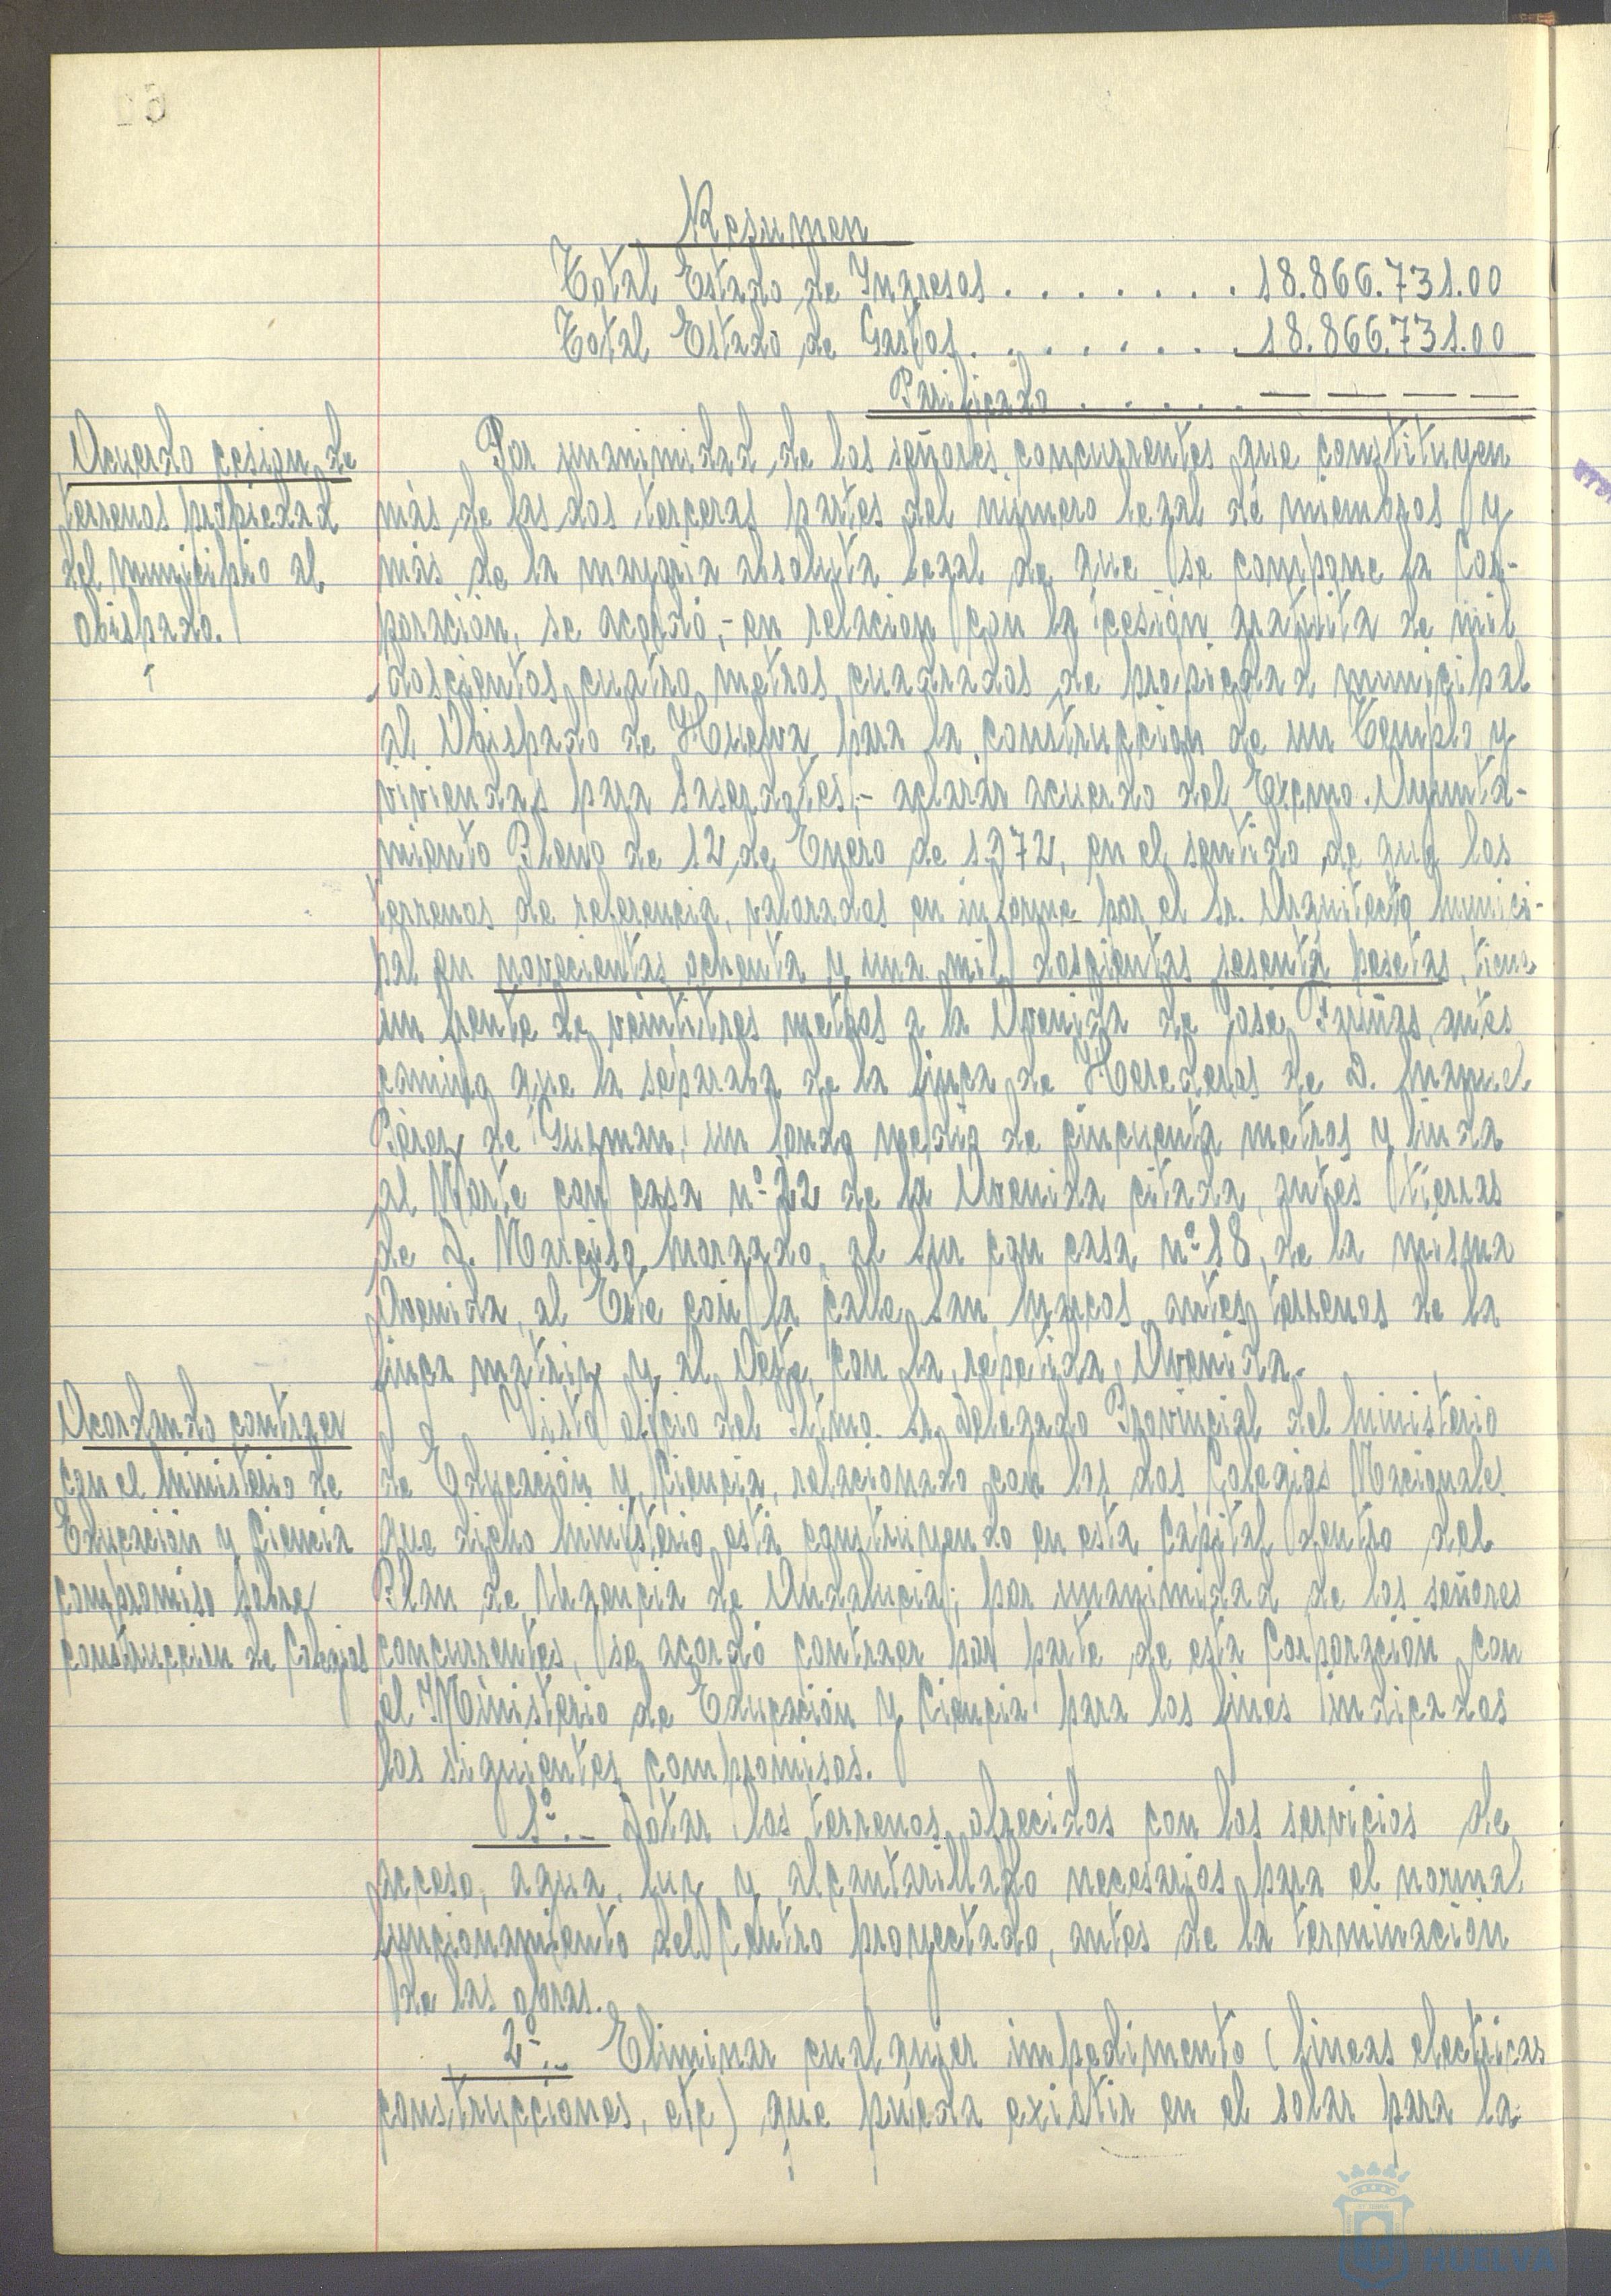 Resumen
Total Estado de Ingresos . . . . . . . . 18.866.731.00
Total Estado de Gastos . . . . . . . . 18.866.731.00
Parificado . . . . . . — — — —
Acuerdo cesion de
terrenos propiedad
del Municipio al
Obispado.
Por unanimidad de los señores concurrentes que constituyen
más de las dos terceras partes del número legal de miembros y
más de la mayoria absoluta legal de que se compone la Cor-
poración, se acordó,- en relacion con la cesión gratuita de mil
doscientos cuatro metros cuadrados de propiedad municipal
al Obispado de Huelva para la construccion de un Templo y
viviendas para Sacerdotes,- aclarar acuerdo del Excmo. Ayunta-
miento Pleno de 12 de Enero de 1.972, en el sentido de que los
terrenos de referencia, valorados en informe por el Sr. Arquitecto Munici-
pal en novecientas ochenta y una mil doscientas sesenta pesetas, tiene
un frente de veintitres metros a la Avenida de José Fariñas, antes
camino que la separaba de la finca de Herederos de D. Manuel
Pérez de Guzman, un fondo medio de cincuenta metros y linda
al Norte con casa nº 22 de la Avenida citada, antes tierras
de D. Narciso Morgado, al Sur con casa nº 18, de la misma
Avenida, al Este con la calle San Marcos, antes terrenos de la
finca matriz y al Oeste con la repetida Avenida.
Acordando contraer
con el Ministerio de
Educación y Ciencia
compromiso sobre
construccion de Colegios
Visto oficio del Iltmo. Sr. Delegado Provincial del Ministerio
de Educación y Ciencia, relacionado con los dos Colegios Nacionales
que dicho Ministerio está construyendo en esta Capital dentro del
Plan de Urgencia de Andalucia; por unanimidad de los señores
concurrentes, se acordó contraer por parte de esta Corporación con
el Ministerio de Educación y Ciencia para los fines indicados
los siguientes compromisos.
1º.- Dotar los terrenos ofrecidos con los servicios de
acceso, agua, luz y alcantarillado necesarios para el normal
funcionamiento del Centro proyectado, antes de la terminación
de las obras.
2º.- Eliminar cualquier impedimento (lineas electricas
construcciones, etc) que pueda existir en el solar para la
HUELVA